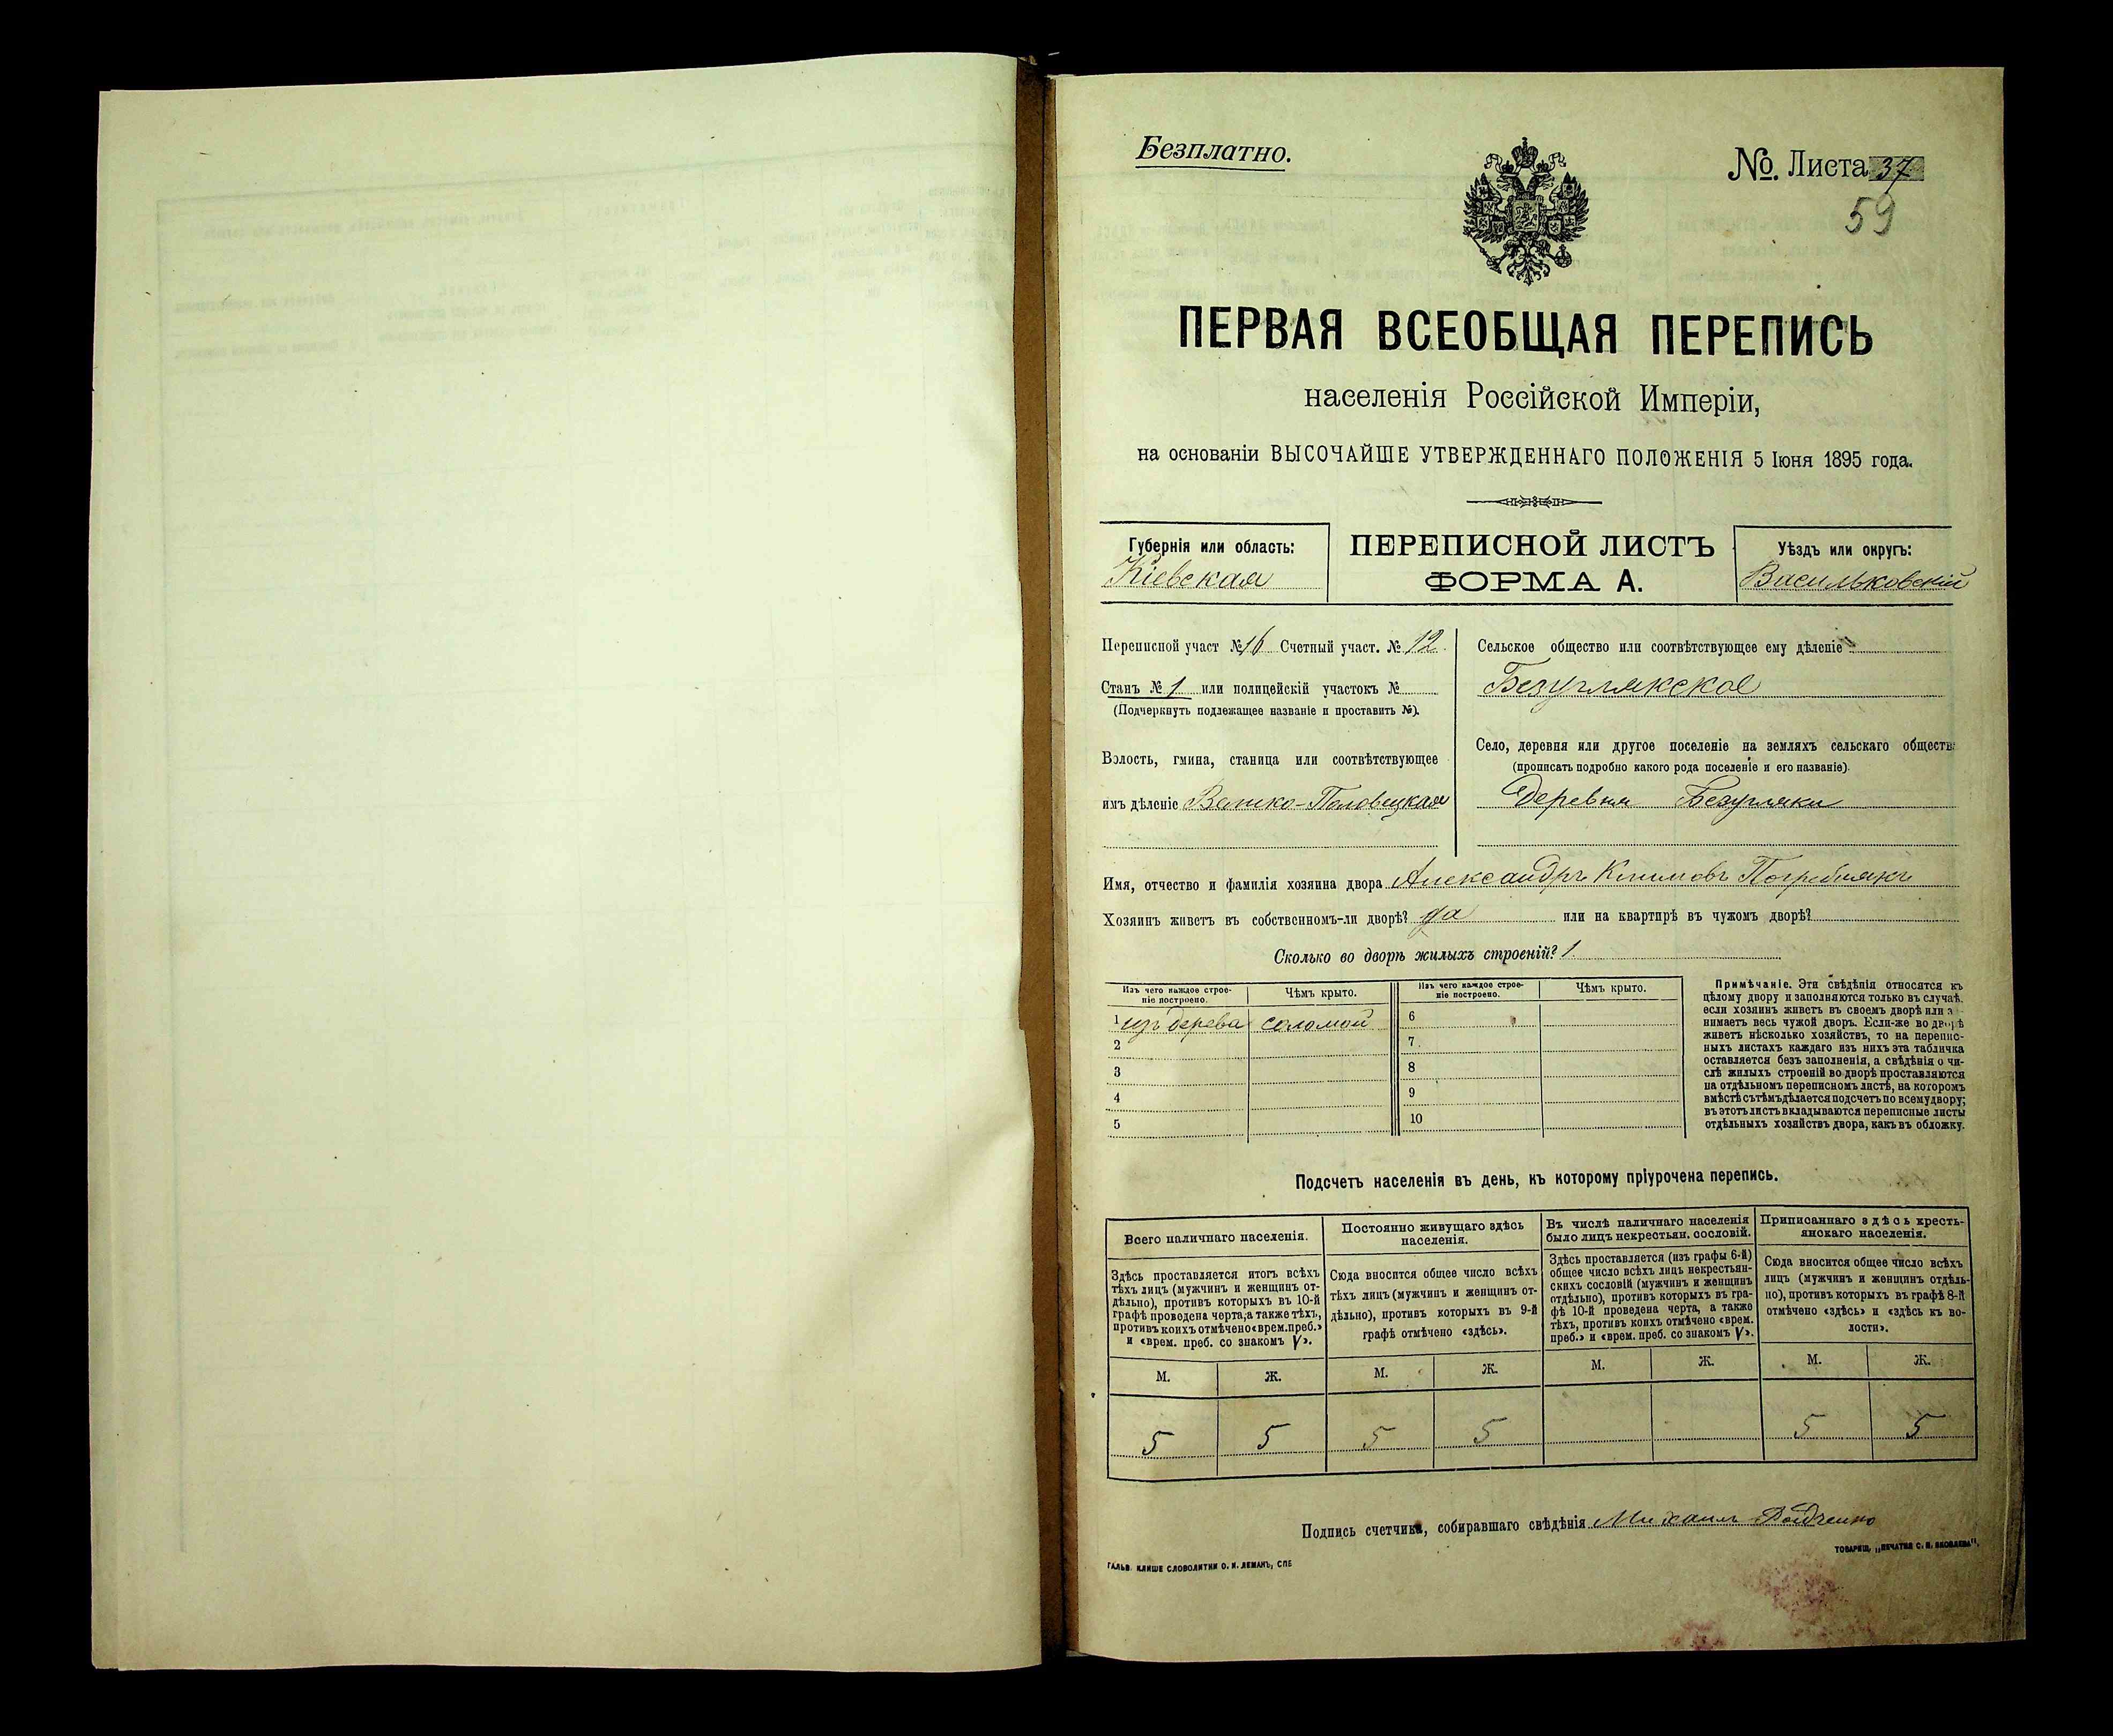 Безплатно.
№. Листа 37
59
ПЕРВАЯ ВСЕОБЩАЯ ПЕРЕПИСЬ
населенія Россійской Имперіи,
на основаніи ВЫСОЧАЙШЕ УТВЕРЖДЕННАГО ПОЛОЖЕНІЯ 5 Іюня 1895 года.
Губернія или область:
Кіевская
ПЕРЕПИСНОЙ ЛИСТЪ
ФОРМА А.
Уѣздъ или округъ:
Васильковскій
Переписной участ № 16 Счетный участ. № 12.
Станъ № 1 или полицейскій участокъ №
(Подчеркнуть подлежащее названіе и проставить №).
Волость, гмина, станица или соотвѣтствующее
имъ дѣленіе Велико-Половецкая
Сельское общество или соотвѣтствующее ему дѣленіе
Безуглякское
Село, деревня или другое поселеніе на земляхъ сельскаго обществ
(прописать подробно какого рода поселеніе и его названіе).
Деревня Безугляки
Имя, отчество и фамилія хозяина двора Александръ Климовъ Погреблякъ
Хозяинъ живетъ въ собственномъ-ли дворѣ? да или на квартирѣ въ чужомъ дворѣ?
Сколько во дворѣ жилыхъ строеній? 1.
Изъ чего каждое строе-
ніе построено.
Чѣмъ крыто.
Изъ чего каждое строе-
ніе построено.
Чѣмъ крыто.
1 изъ дерева соломой
2
3
4
5
6
7
8
9
10
Примѣчаніе. Эти свѣдѣнія относятся къ
цѣлому двору и заполняются только въ случаѣ.
если хозяинъ живетъ въ своемъ дворѣ или за-
нимаетъ весь чужой дворъ. Если-же во дворѣ
живетъ нѣсколько хозяйствъ, то на перепис-
ныхъ листахъ каждаго изъ нихъ эта табличка
оставляется безъ заполненія, а свѣдѣнія о чи-
слѣ жилыхъ строеній во дворѣ проставляются
на отдѣльномъ переписномъ листѣ, на которомъ
вмѣстѣ съ тѣмъ дѣлается подсчетъ по всему двору;
въ этотъ листъ вкладываются переписные листы
отдѣльныхъ хозяйствъ двора, какъ въ обложку.
Подсчетъ населенія въ день, къ которому пріурочена перепись.
Всего наличнаго населенія.
Здѣсь проставляется итогъ всѣхъ
тѣхъ лицъ (мужчинъ и женщинъ от-
дѣльно), противъ которыхъ въ 10-й
графѣ проведена черта, а также тѣхъ,
противъ коихъ отмѣчено «врем. преб.»
и «врем. преб. со знакомъ V».
Постоянно живущаго здѣсь
населенія.
Сюда вносится общее число всѣхъ
тѣхъ лицъ (мужчинъ и женщинъ от-
дѣльно), противъ которыхъ въ 9-й
графѣ отмѣчено «здѣсь».
Въ числѣ наличнаго населенія
было лицъ некрестьян. сословій.
Здѣсь проставляется (изъ графы 6-й)
общее число всѣхъ лицъ некрестьян-
скихъ сословій (мужчинъ и женщинъ
отдѣльно), противъ которыхъ въ гра-
фѣ 10-й проведена черта, а также
тѣхъ, противъ коихъ отмѣчено «врем.
преб.» и «врем. преб. со знакомъ V».
Приписаннаго здѣсь кресть-
янскаго населенія.
Сюда вносится общее число всѣхъ
лицъ (мужчинъ и женщинъ отдѣль-
но), противъ которыхъ въ графѣ 8-й
отмѣчено «здѣсь» и «здѣсь къ во-
лости».
М. Ж. М. Ж. М. Ж. М. Ж.
5 5 5 5 5 5
Подпись счетчика, собиравшаго свѣдѣнія Михаилъ
ГАЛЬВ. КЛИШЕ СЛОВОЛИТНИ О. И. ЛЕМАНЪ, СПБ
ТОВАРИЩ. „ПЕЧАТНЯ С. П. ЯКОВЛЕВА".